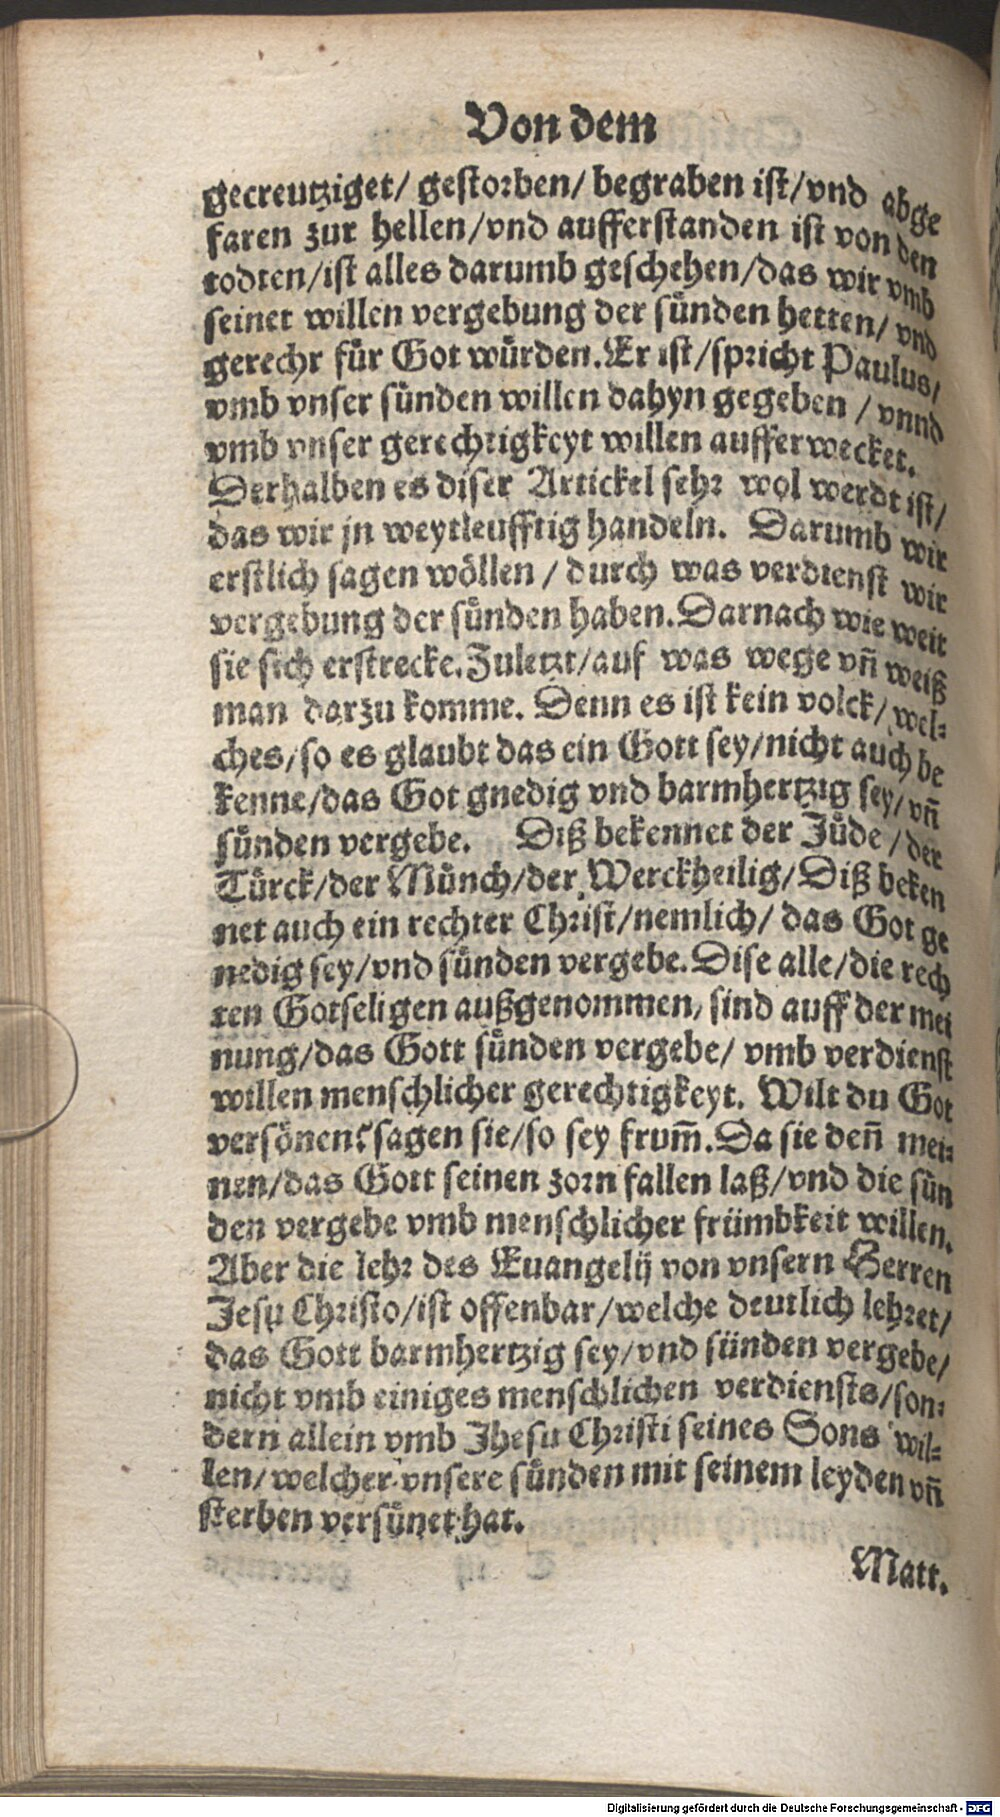 Von dem
gecreutziget/ gestorben/ begraben ist/vnd abge
faren zur hellen/vnd aufferstanden ist von den
todten/ist alles darumb geschehen/das wir vmb
seinet willen vergebung der sünden hetten/ vnd
gerecht für Got würden. Er ist/spricht Paulus/
vmb vnser sünden willen dahyn gegeben / vnnd
vmb vnser gerechtigkeyt willen aufferwecket.
Derhalben es diser Artickel sehr wol werdt ist/
das wir jn weytleufftig handeln. Darumb wir
erstlich sagen wöllen / durch was verdienst wir
vergebung der sünden haben. Darnach wie weit
sie sich erstrecke. Zuletzt/auf was wege vñ weiß
man darzu komme. Denn es ist kein volck/ wel-
ches/so es glaubt das ein Gott sey/nicht auch be
kenne/das Got gnedig vnd barmhertzig sey/ vñ
sünden vergebe. Diß bekennet der Jüde / der
Türck/der Münch/der Werckheilig/ Diß beken
net auch ein rechter Christ/nemlich/ das Got ge
nedig sey/vnd sünden vergebe. Dise alle/die rech
ten Gotseligen außgenommen, sind auff der mei
nung/das Gott sünden vergebe/ vmb verdienst
willen menschlicher gerechtigkeyt. Wilt du Got
versönen? sagen sie/so sey frum̃. Da sie deñ mei-
nen/das Gott seinen zorn fallen laß/vnd die sün
den vergebe vmb menschlicher frümbkeit willen.
Aber die lehr des Euangelij von vnsern Herren
Jesu Christo/ist offenbar/welche deutlich lehret/
das Gott barmhertzig sey/vnd sünden vergebe/
nicht vmb einiges menschlichen verdiensts/son-
dern allein vmb Jhesu Christi seines Sons wil-
len/welcher vnsere sünden mit seinem leyden vñ
sterben versünet hat.
Matt.
Digitalisierung gefördert durch die Deutsche Forschungsgemeinschaft - DFG